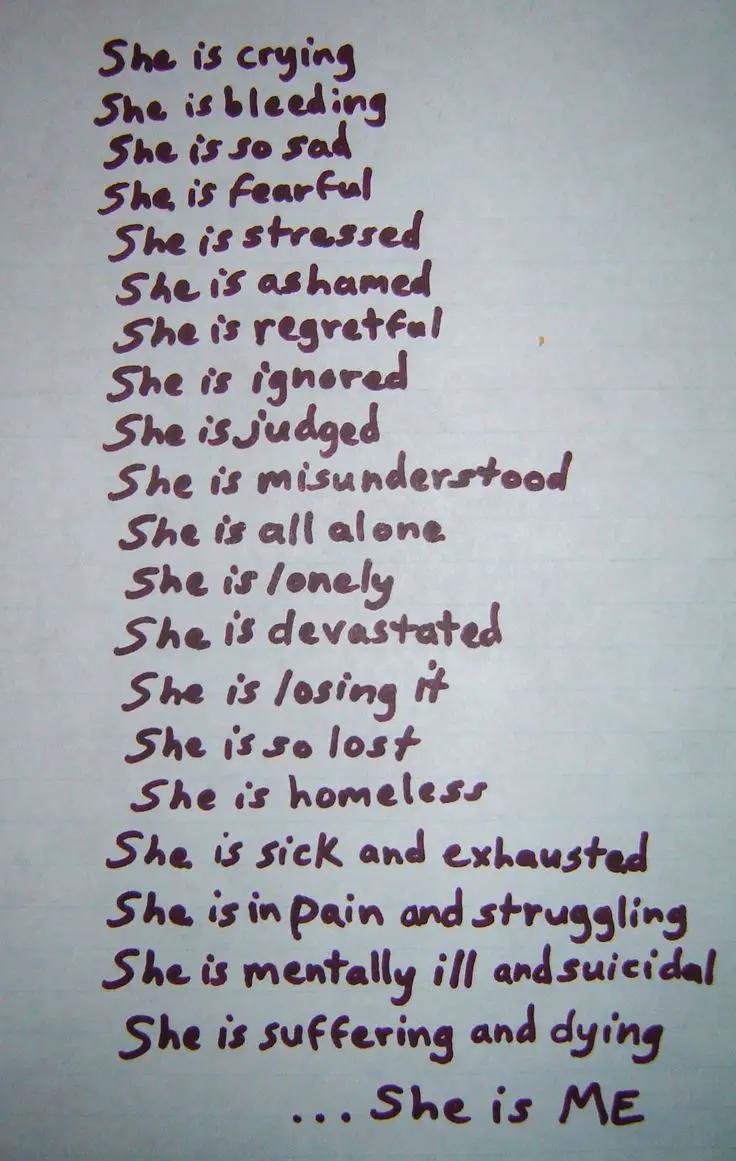 She is crying
She is bleeding
She is so sad
She is fearful
She is stressed
She is ashamed
She is regretful
She is ignored
She is judged
She is misunderstood
She is all alone
She is lonely
She is devastated
She is losing it
She is so lost
She is homeless
She is sick and exhausted
She is in pain and struggling
She is mentally ill and suicidal
She is suffering and dying
... She is ME